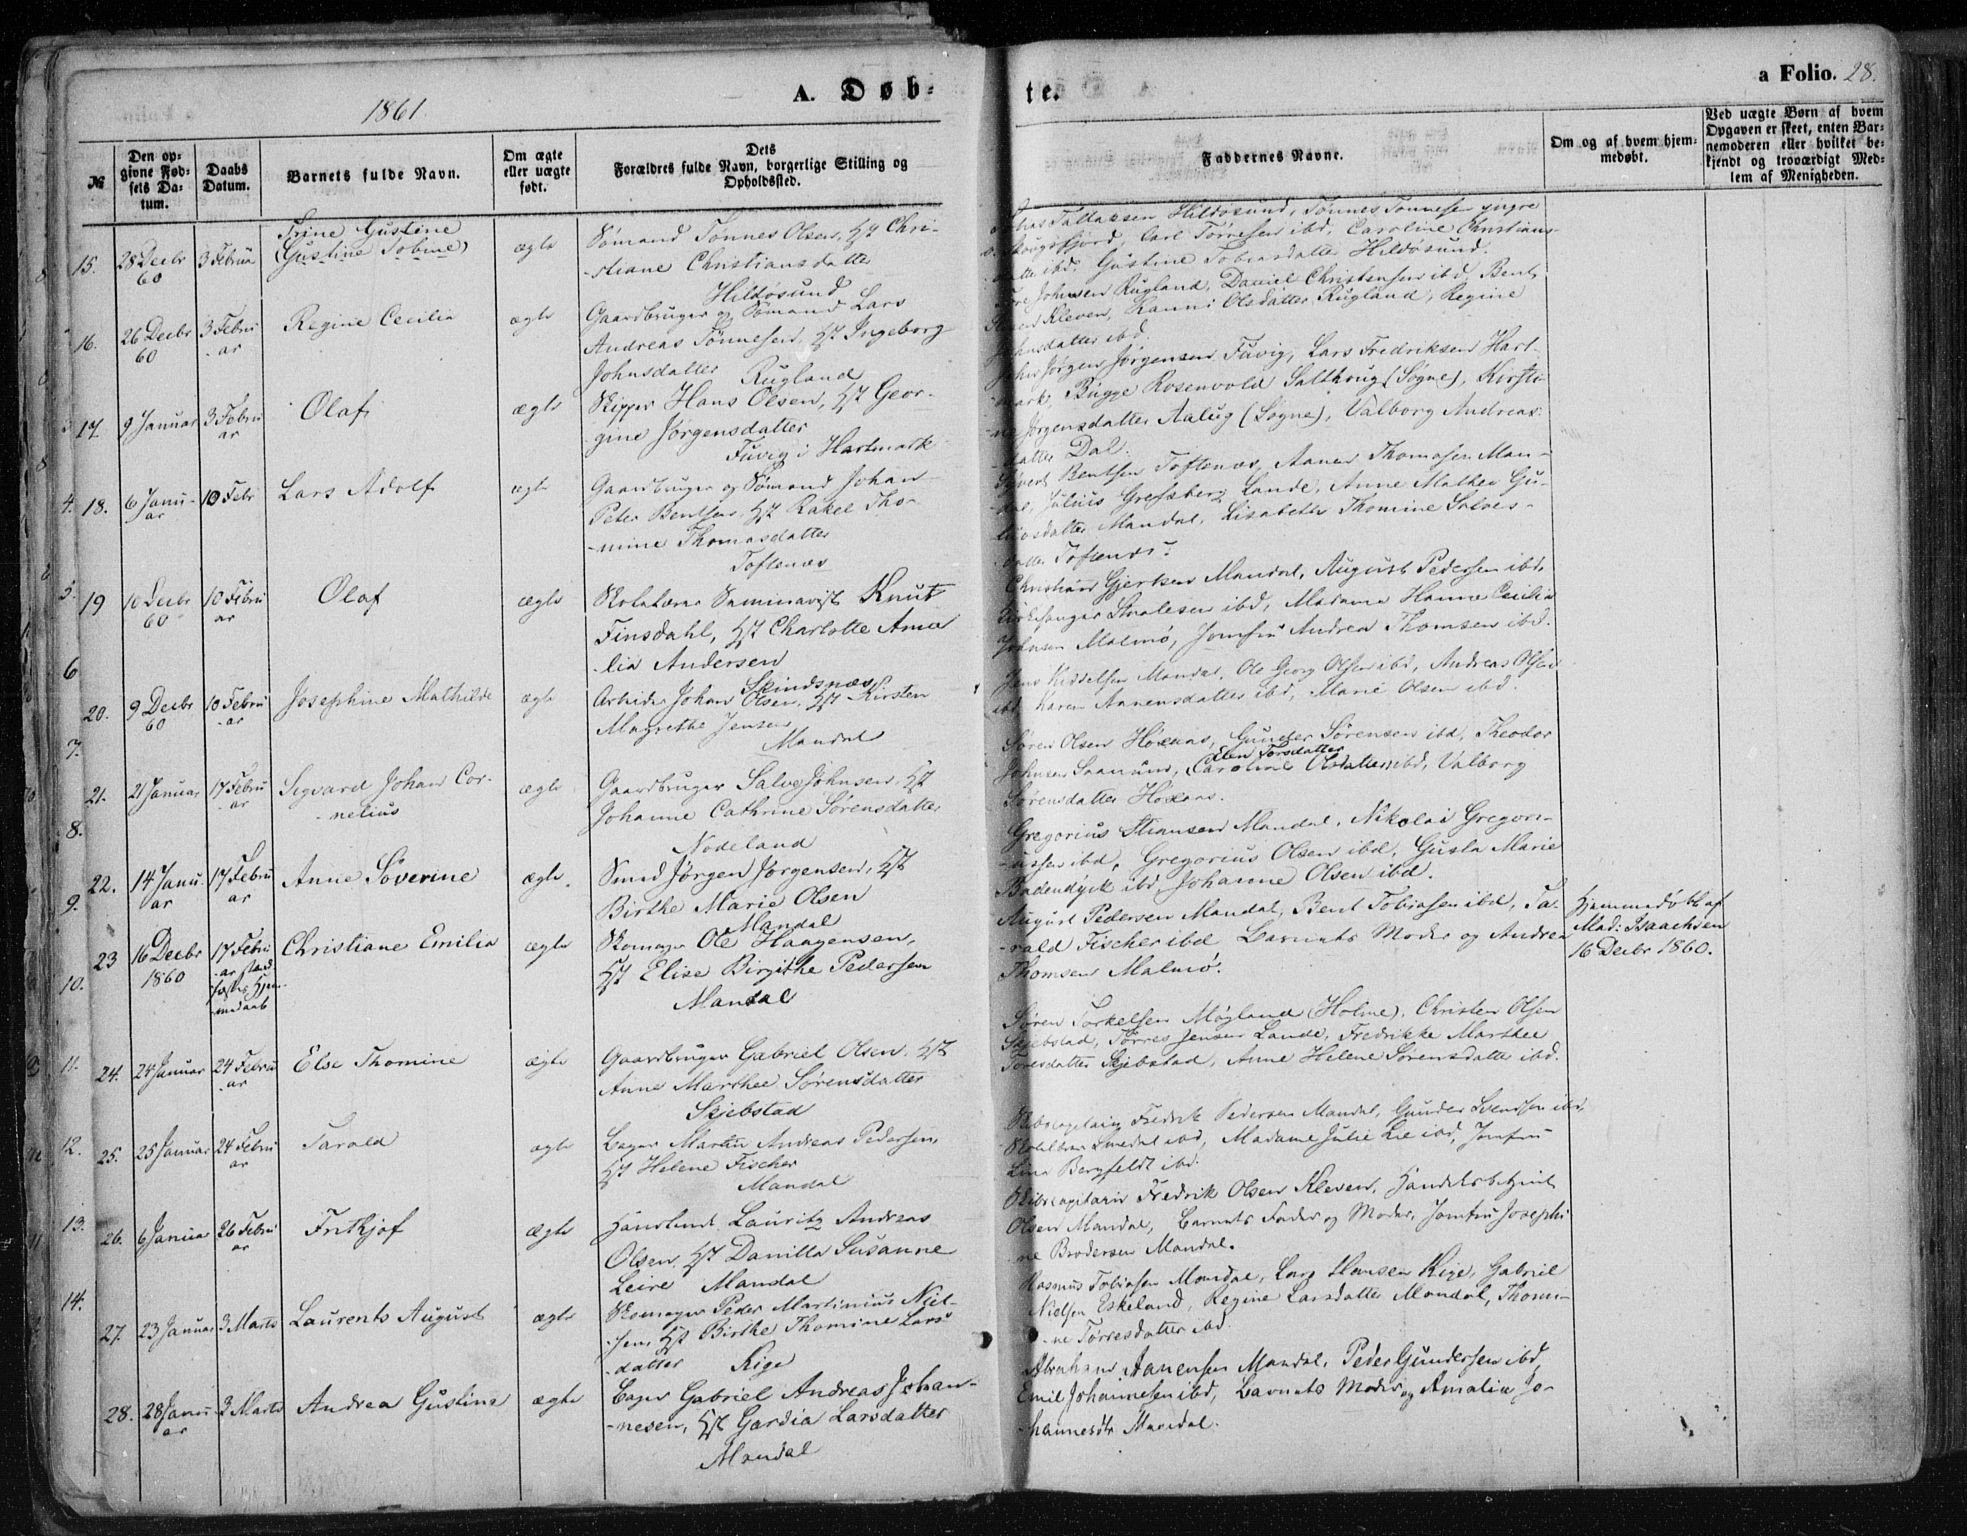 1861.
A. Døb-
te.
a Folio. 28.
№
Den op-
givne Fød-
sels Da-
tum.
Daabs
Datum.
Barnets fulde Navn.
Om ægte
eller uægte
født.
Dets
Forældres fulde Navn, borgerlige Stilling og
Opholdssted.
Faddernes Navne.
Om og af hvem hjem-
medøbt.
Ved uægte Børn af hvem
Opgaven er skeet, enten Bar-
nemoderen eller hvilket be-
kjendt og troværdigt Med-
lem af Menigheden.
15. 28 Decbr 60
3 Februa
Trine Gustine
(Gustine Tobine)
ægte
Sømand Tønnes Olsen, Hst Chri-
stiane Christiansdatter
Hildøsund
Tallaksen Hildøsund, Tønnes Tønnesen yngre
Carl Tørresen ibd, Caroline Christians-
datter ibd. Gustine Tobiasdatter Hildøsund.
16. 26 Decbr 60
3 Febru-
ar
Regine Cecilia
ægte
Gaardbruger og Sømand Lars
Andreas Tønnesen, Hst Ingeborg
Johnsdatter Rugland
Johnsen Rugland, Daniel Christensen ibd, Bent
Kleven, Olsdatter Rugland, Regine
Johnsdatter ibd.
17. 9 Januar
3 Febru
ar
Olaf
ægte
Skipper Hans Olsen, Hst Geor-
gine Jørgensdatter
Fuvig i Hartmark
Jørgen Jørgensen Fuvig, Lars Fredriksen Hart-
mark, Bugge Rosenvold Salthaug (Søgne), Kirsti-
ne Jørgensdatter Aalug (Søgne), Valborg Andreas-
datter Dal.
4. 18. 6 Janu-
ar
10 Febr
Lars Adolf
ægte
Gaardbruger og Sømand Johan
Peter Bentsen, Hst Rakel Tho-
mine Thomasdatter
Toftenæs
Bentsen Toftenæs, Aanen Thomasen Man-
dal, Julius Lande, Anne Mathea Gu-
Mandal, Lisabeth Thomine Salves-
datter Toftenæs.
5. 19 10 Decbr 60
10 Febru
ar
Olaf
ægte
Skolelærer Seminarist Knut
Finsdahl, Hst Charlotte Ama
lia Andersen
Skindsnæs
Christian Gjertsen Mandal, August Pedersen ibd,
Kirkesanger Svalesen ibd, Madame Hanne Cecilia
Johnsen Malmø, Jomfru Andrea Thomsen ibd.
6
20. 9 Decbr 60
10 Febru
ar
Josephine Mathilde
ægte
Arbeider Johan Olsen, Hst Kirsten
Magrethe Jensen
Mandal
Jens Mandal, Ole Georg Olsen ibd, Andreas Olsen
ibd, Karen Aanensdatter ibd, Marie Olsen ibd.
7.
21. 21 Januar
17 Febru
ar
Sigvard Johan Cor-
nelius
ægte
Gaardbruger Salve Johnsen, Hst
Johanne Cathrine Sørensdatter
Nodeland
Søren Olsen Hoxaas, Gunder Sørensen ibd, Theodor
Elen Torsdatter
Johnsen Caroline Olsdatter ibd, Valborg
Sørensdatter Hoxaas.
8.
22. 14 Janu-
ar
17 Febru
ar
Anne Severine
ægte.
Smed Jørgen Jørgensen, Hst
Birthe Marie Olsen
Mandal
Gregorius Hansen Mandal, Nikolai Gregori-
ussen ibd, Gregorius Olsen ibd, Gusta Marie
Badendyck ibd, Johanne Olsen ibd.
9.
23 16 Decbr
1860
17 Febru
ar
Christiane Emilia
ægte
Skomager Ole Haagensen,
Hst Elise Birgithe Pedersen
Mandal
August Pedersen Mandal, Bent Tobiasen ibd, Ta-
rald Fischer ibd Barnets Moder og Andrea
Thomsen Malmø.
Hjemmedøbt af
Mad: Isaachsen
16 Decbr 1860.
10.
11. 24. 24 Januar
24 Febru
ar
Else Thomine
ægte
Gaardbruger Gabriel Olsen, Hst
Anne Marthee Sørensdatter
Skjebstad
Søren Torkelsen Møgland (Holme), Christen Olsen
Skjebstad, Tørres Jensen Lande, Fredrikke Marthee
Skjebstad, Anne Helene Sørensdatter ibd.
12. 25. 25 Januar
24 Febru
ar
Tarald
ægte
Bager Martin Andreas Pedersen,
Hst Helene Fischer
Mandal
Skibscaptain Fredrik Pedersen Mandal, Gunder Svendsen ibd,
ibd, Madame Julie Lie ibd, Jomfru
Lina Bergfeldt ibd.
13. 26. 6 Januar
26 Febru
ar
Frithjof
ægte
Lauritz Andreas
Olsen, Hst Danilla Susanne
Leire Mandal
Skibscaptain Fredrik Olsen Kleven,
Olsen Mandal, Barnets Fader og Moder, Jomfru Josephi-
ne Brodersen Mandal.
14.
27. 23 Januar
3 Marts
Laurents August
ægte
Skomager Peder Martinius Niel-
sen, Hst Birthe Thomine Lars-
datter Kige
Rasmus Tobiasen Mandal, Lars Hansen Kige, Gabriel
Nielsen Eskeland, Regine Larsdatter Mandal, Thomi-
ne Tørresdatter ibd.
28. 28 Janu
ar
3 Marts
Andrea Gustina
ægte
Bager Gabriel Andreas Johan-
nesen, Hst Gardia Larsdatter
Mandal
Abraham Aanensen Mandal, Peder Gundersen ibd,
Emil Johannesen ibd, Barnets Moder og Amalie Jo-
hannesdtr Mandal.